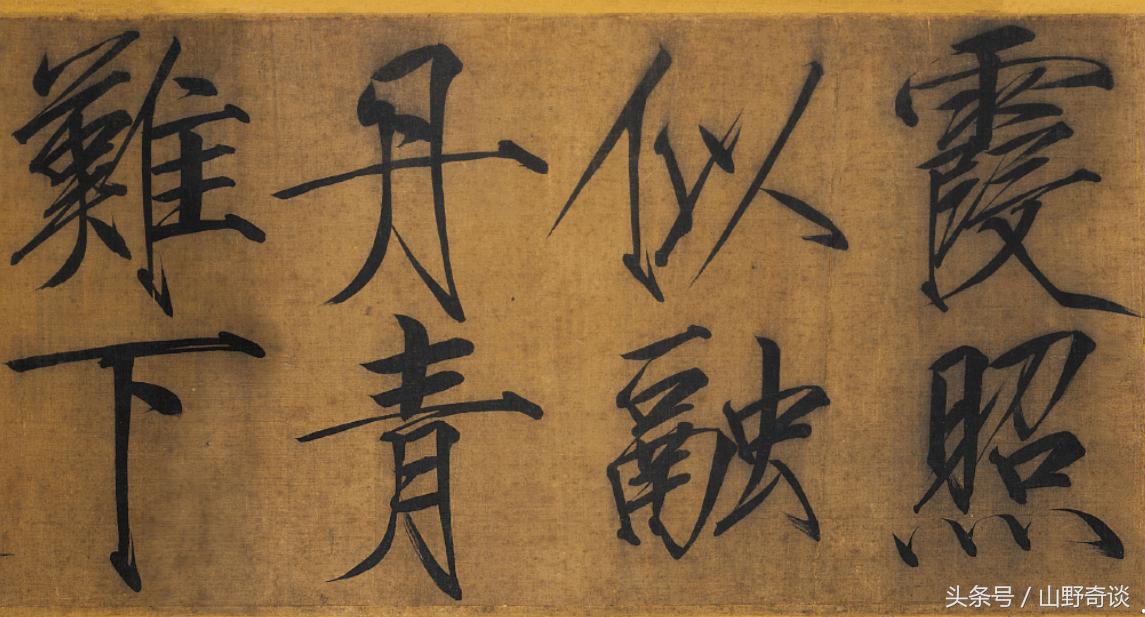 霞照
似融
丹青
難下
头条号 / 山野奇谈